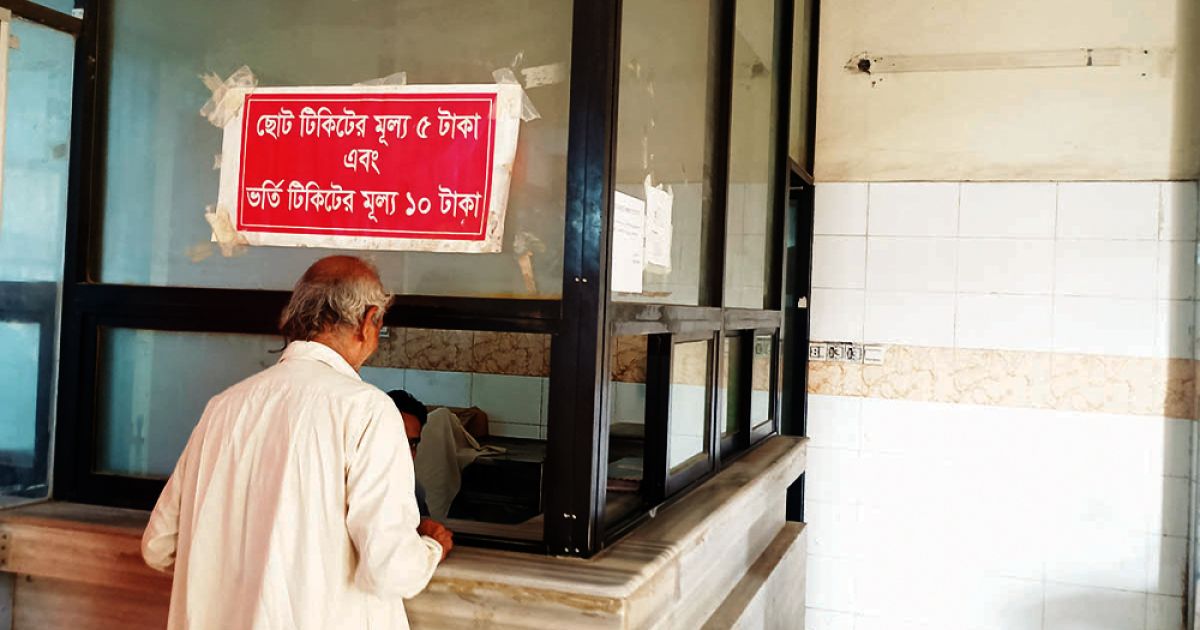 ছোট টিকিটের মূল্য ৫ টাকা
এবং
ভর্তি টিকিটের মূল্য ১০ টাকা